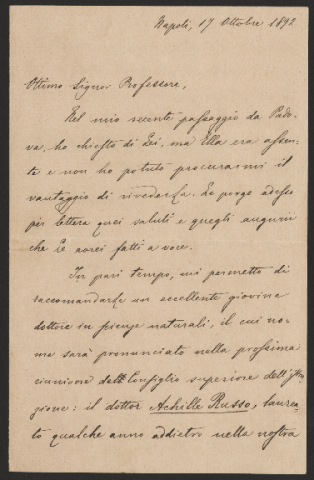 Napoli, 17 Ottobre 1892
Ottimo Signor Professore,
Nel mio recente passaggio da Pado-
va, ho chiesto di Lei, ma Ella era assen-
te e non ho potuto procurarmi il
vantaggio di rivederLa. Le porgo adesso
per lettera quei saluti e quegli augurii
che Le avrei fatti a voce.
In pari tempo, mi permetto di
raccomandarLe un eccellente giovine
dottore in scienze naturali, il cui no-
me sarà pronunciato nella prossima
riunione del Consiglio superiore dell'istru-
zione: il dottor Achille Russo, laurea-
to qualche anno addietro nella nostra